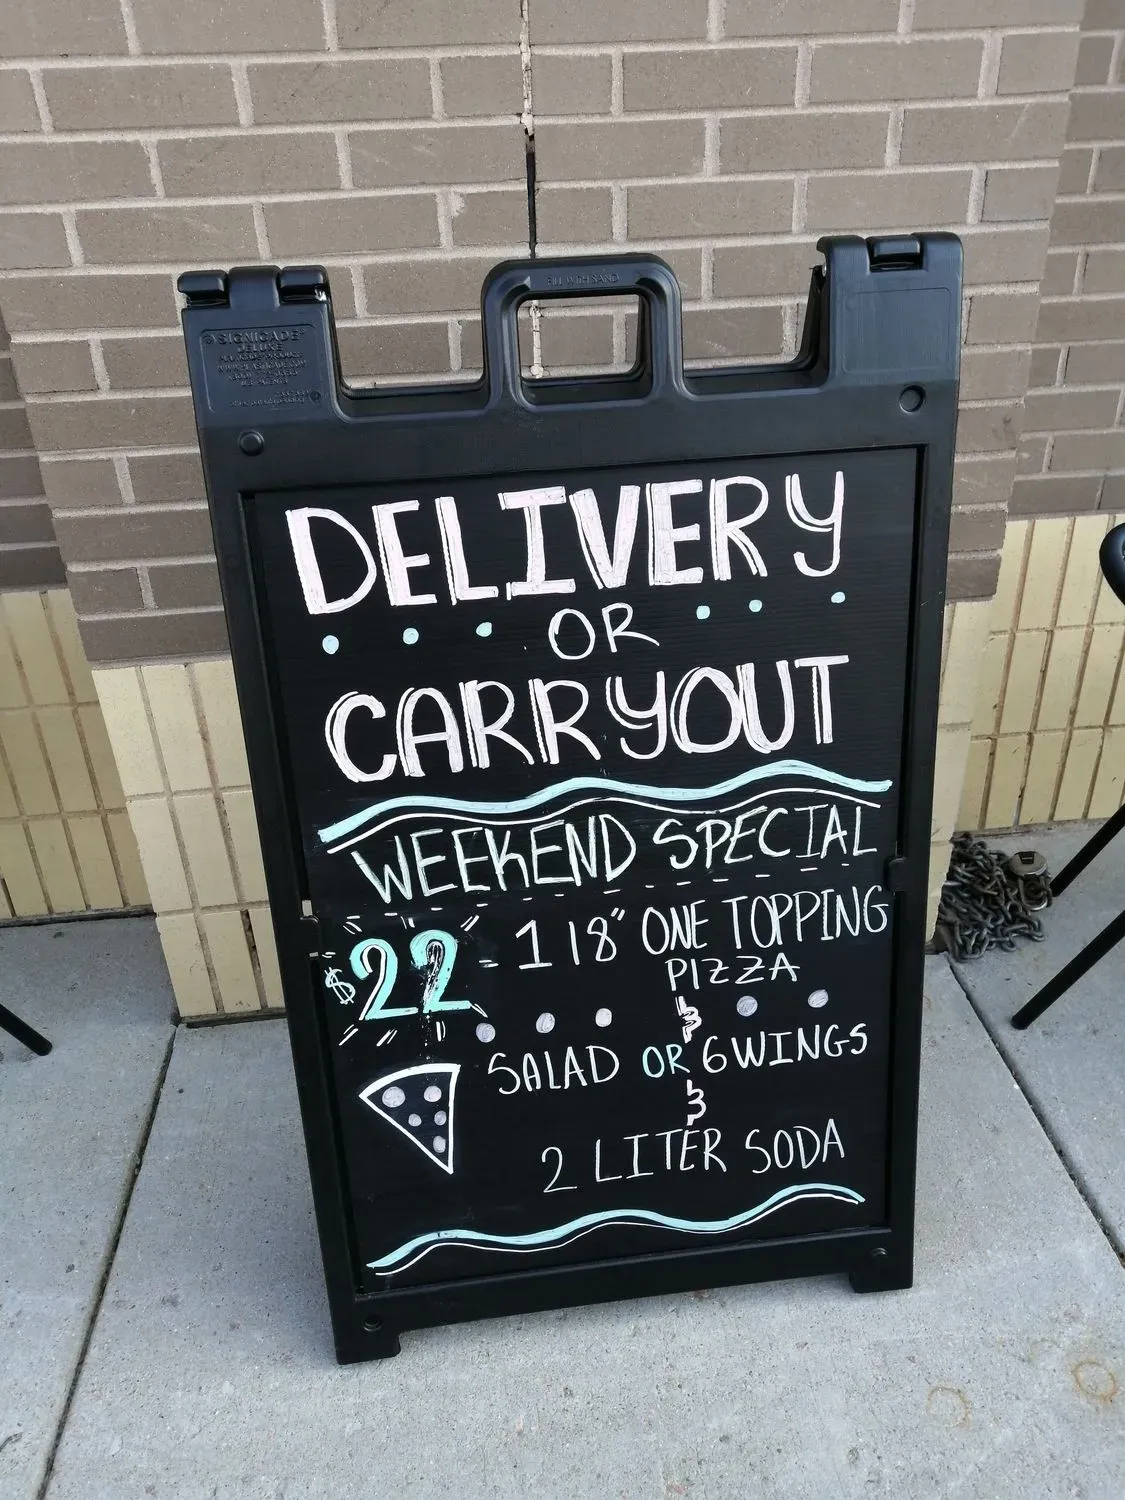 FILL WITH SAND
SIGNICADE®
DELUXE
DELIVERY
OR
CARRYOUT
WEEKEND SPECIAL
$22 - 1 18" ONE TOPPING
PIZZA
&
SALAD OR 6 WINGS
&
2 LITER SODA